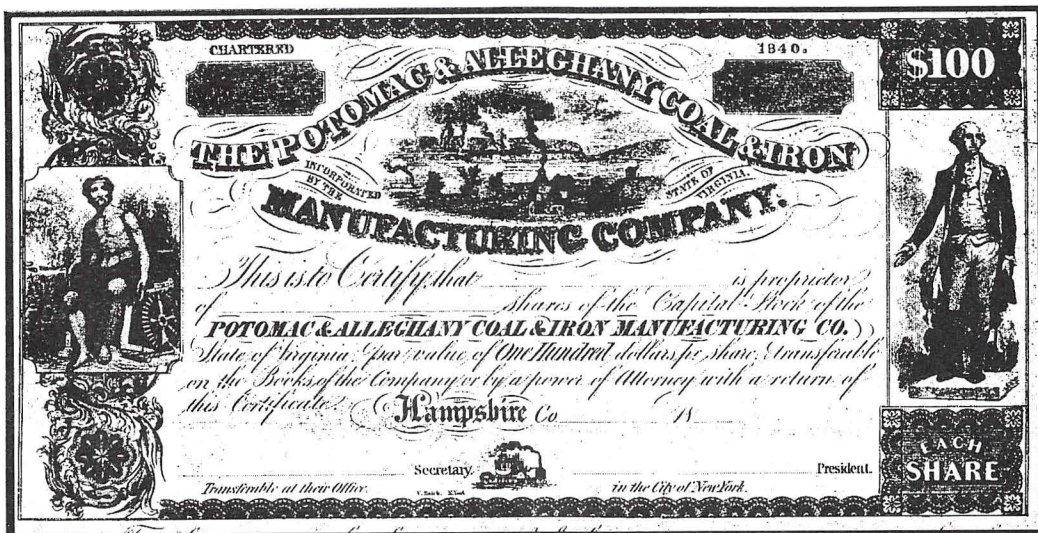 CHARTERED 1840.
$100
THE POTOMAC & ALLEGHANY COAL & IRON
INCORPORATED BY THE STATE OF VIRGINIA.
MANUFACTURING COMPANY.
This is to Certify that is proprietor
of shares of the Capital Stock of the
POTOMAC & ALLEGHANY COAL & IRON MANUFACTURING CO.
State of Virginia par value of One Hundred dollars pr share transferable
on the Books of the Company or by a power of Attorney with a return of
this Certificate.
Hampshire Co 18
Secretary. President.
Transferable at their Office. in the City of New York.
EACH
SHARE